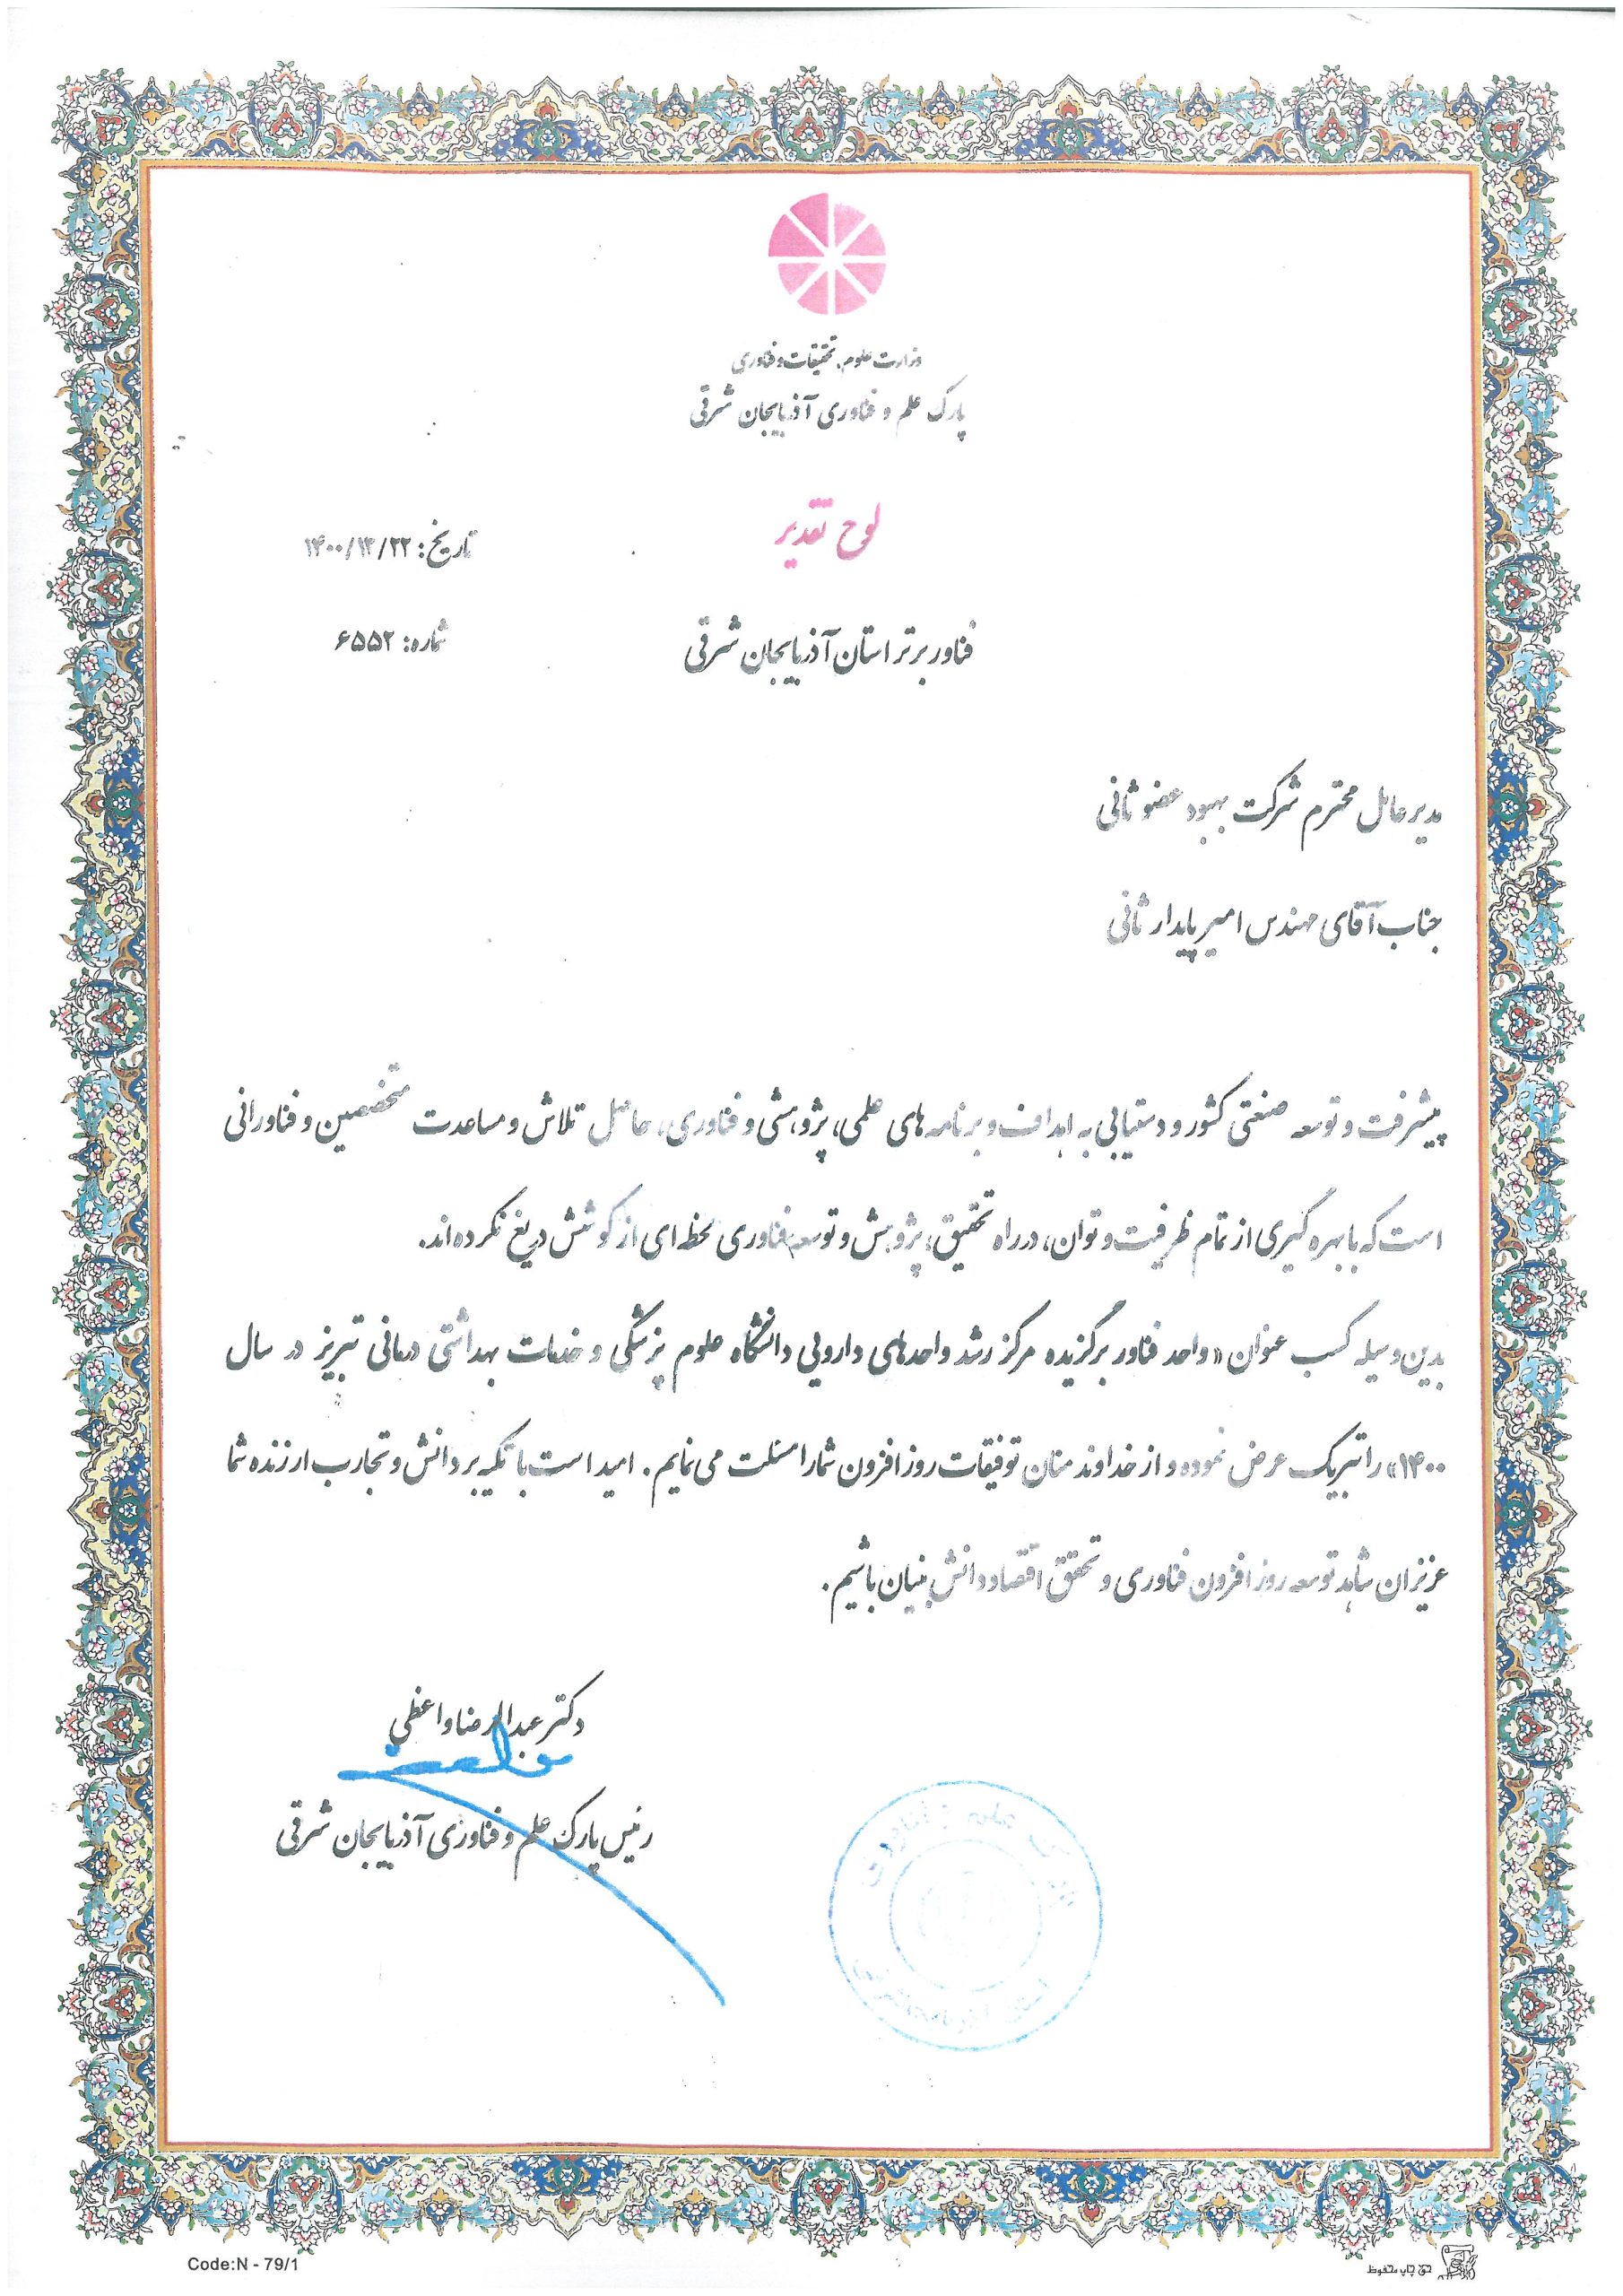 وزارت علوم، تحقیقات و فناوری
پارک علم و فناوری آذربایجان شرقی
لوح تقدیر
تاریخ: ۱۴۰۰/۱۲/۲۲
فناور برتر استان آذربایجان شرقی
شماره: ۶۵۵۲
مدیر عامل محترم شرکت بهبود عضو ثانی
جناب آقای مهندس امیر پایدار ثانی
پیشرفت و توسعه صنعتی کشور و دستیابی به اهداف و برنامه های علمی، پژوهشی و فناوری، حاصل تلاش و مساعدت متخصصین و فناورانی
است که با بهره گیری از تمام ظرفیت و توان، در راه تحقیق، پژوهش و توسعه فناوری لحظه ای از کوشش دریغ نکرده اند.
بدین وسیله کسب عنوان «واحد فناور برگزیده مرکز رشد واحدهای دارویی دانشگاه علوم پزشکی و خدمات بهداشتی درمانی تبریز در سال
۱۴۰۰» را تبریک عرض نموده و از خداوند منان توفیقات روز افزون شما را مسئلت می نمایم. امید است با تکیه بر دانش و تجارب ارزنده شما
عزیزان شاهد توسعه روز افزون فناوری و تحقق اقتصاد دانش بنیان باشیم.
دکتر عبدالرضا واعظی
رئیس پارک علم و فناوری آذربایجان شرقی
Code:N - 79/1
حق چاپ محفوظ